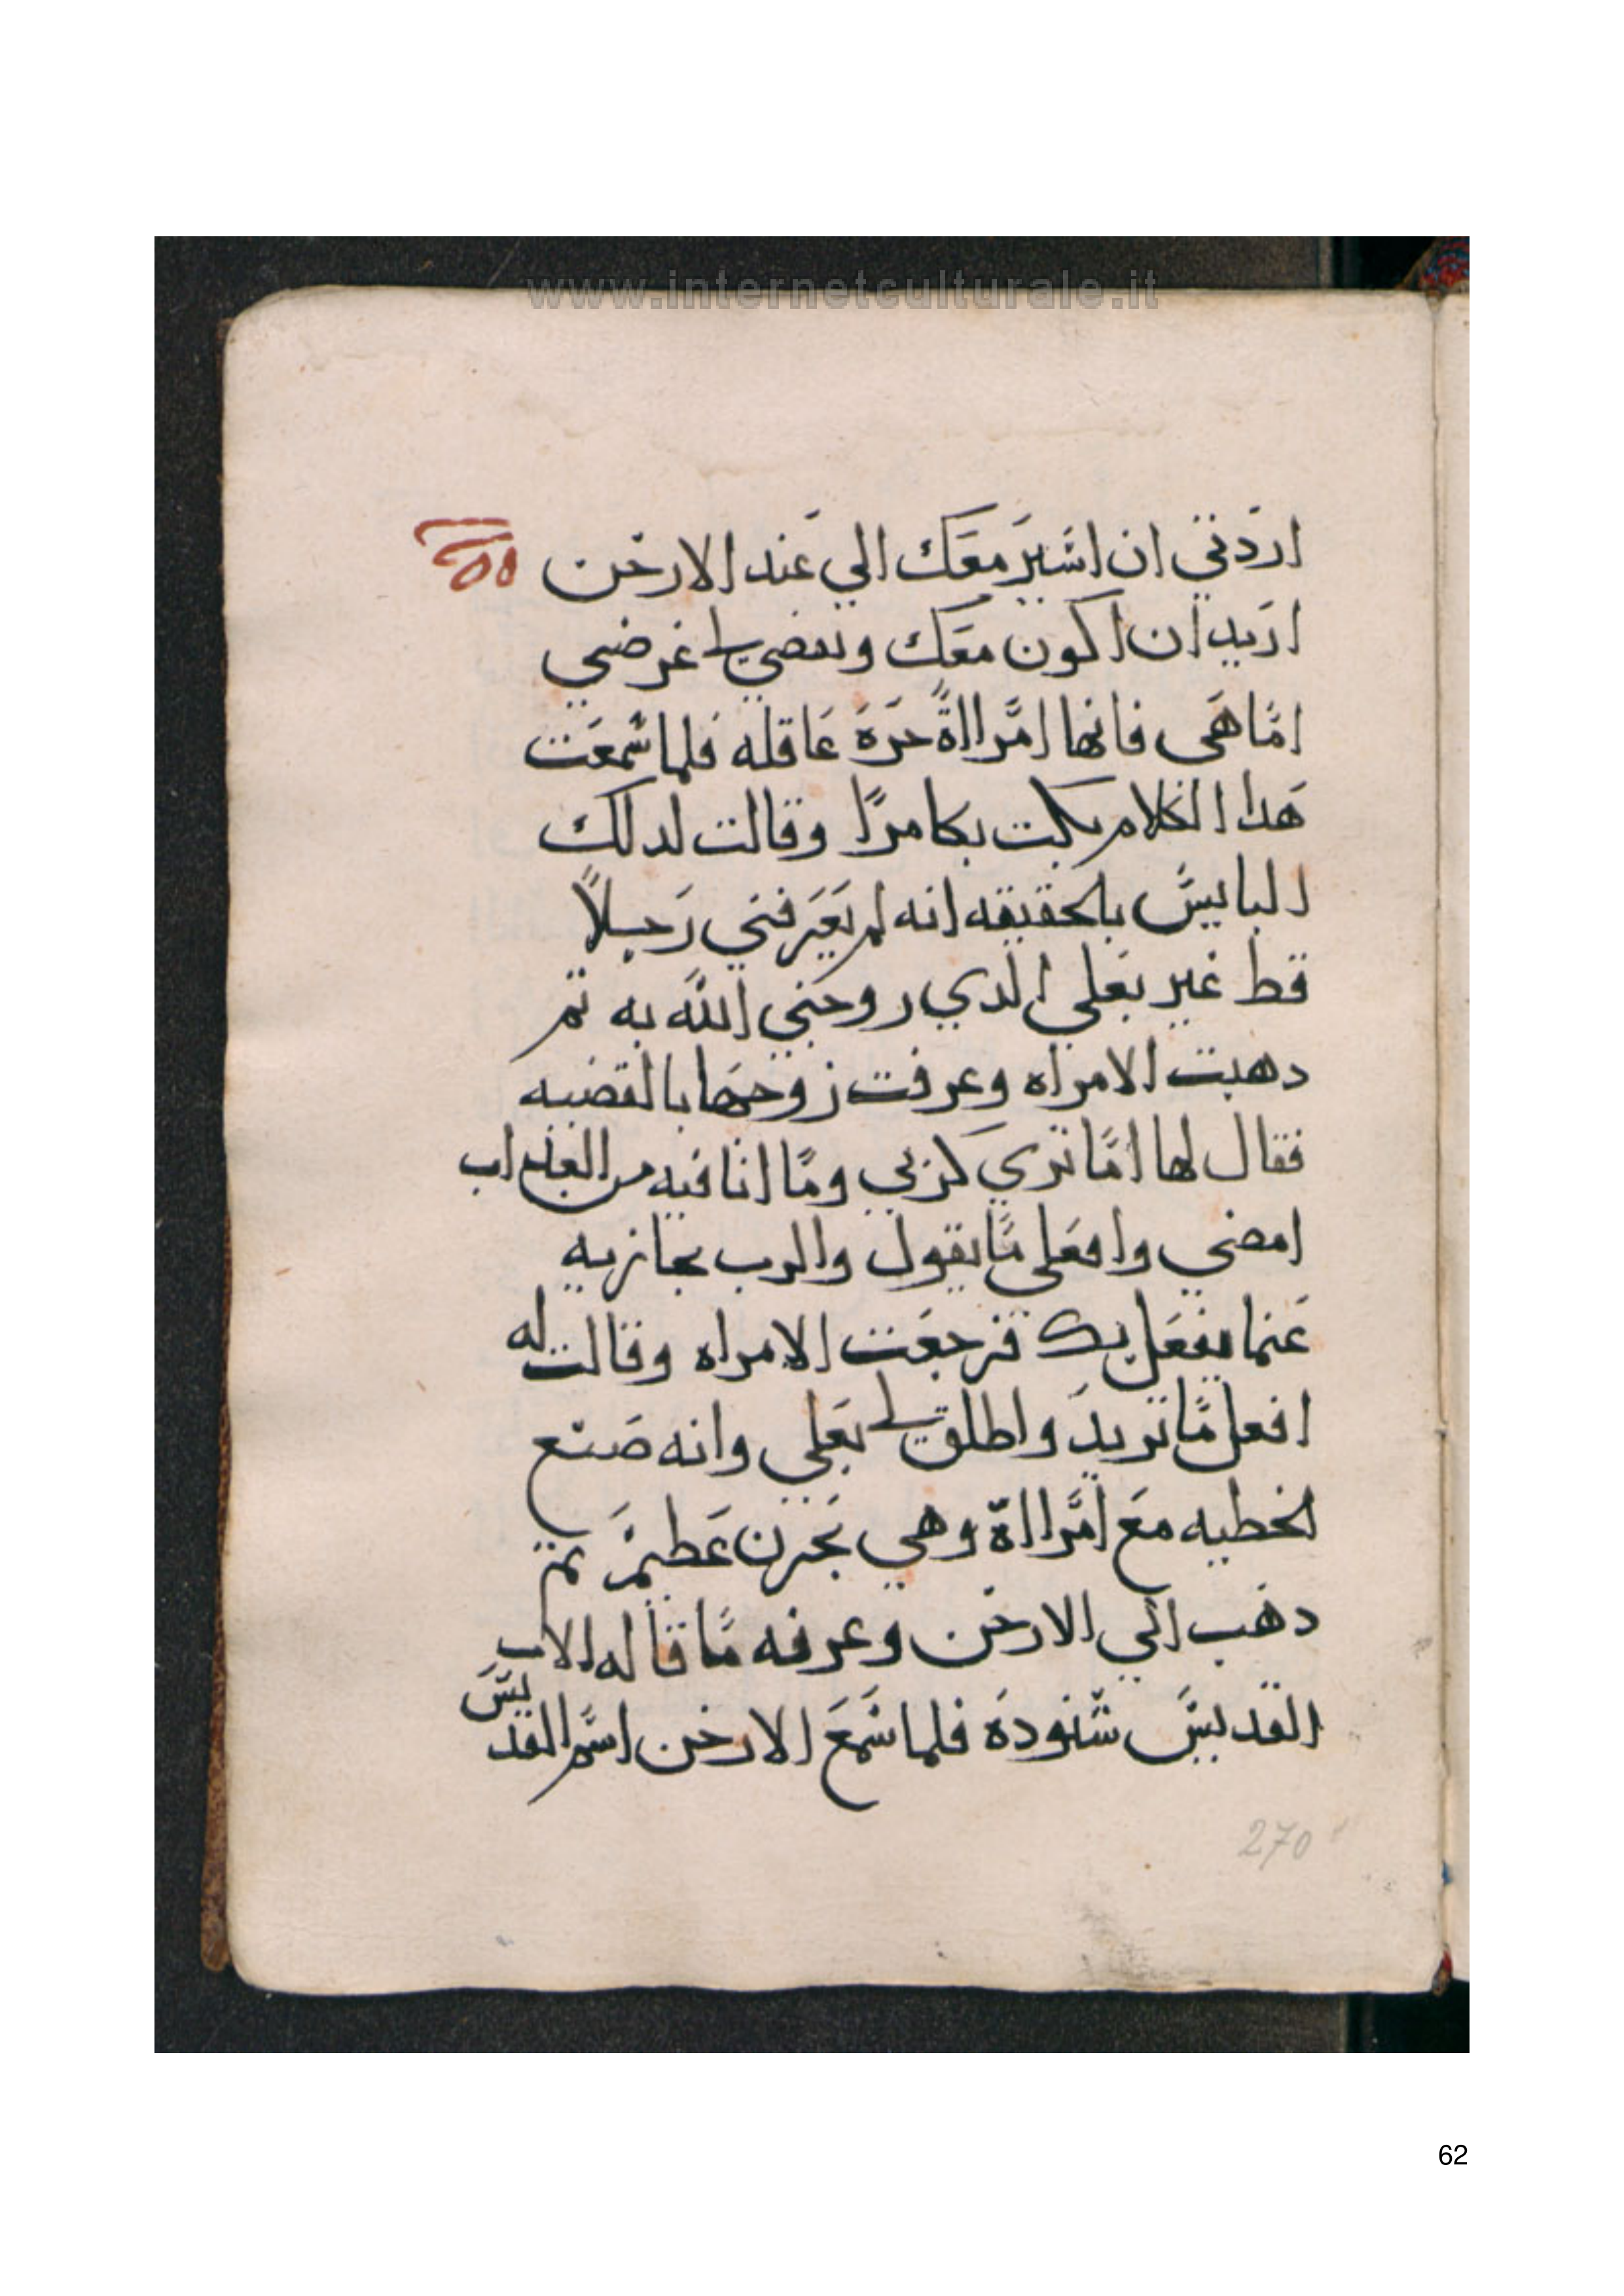 www.internetculturale.it
اردتي ان اسير معك الي عند الارخن
اريد ان اكون معك وتقضي لي غرضي
اما هي فانها امرااة حرة عاقله فلما سمعت
هدا الكلام بكت بكا مرا وقالت لدلك
البايس بالحقيقه انه لم يعرفني رجلا
قط غير بعلي الدي زوجني الله به تم
دهبت الامراه وعرفت زوجها بالقضيه
فقال لها اما تري كربي وما انا فيه من العداب
امضي وافعلي ما يقول والرب يجازيه
عنما يفعل بك فرجعت الامراه وقالت له
افعل ما تريد واطلق لي بعلي وانه صنع
الخطيه مع امرااة وهي بحزن عظيم تم
دهب الي الارخن وعرفه ما قاله الاب
القديس شنوده فلما سمع الارخن اسم القديس
270
62